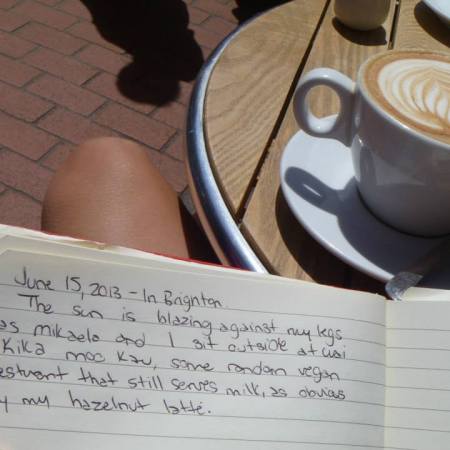 June 15, 2013 - In Brighton.
The sun is blazing against my legs
as mikaela and I sit outside at wai
Kika moo kau, some random vegan
estuant that still serves milk, as obvious
y my hazelnut latté.